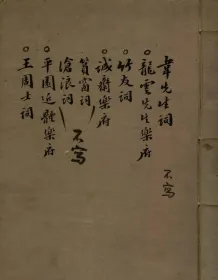 韋先生詞 不寫
龍雲先生樂府
竹友詞
誠齋樂府
篔窗詞
滄浪詞
不寫
平園近體樂府
王周士詞